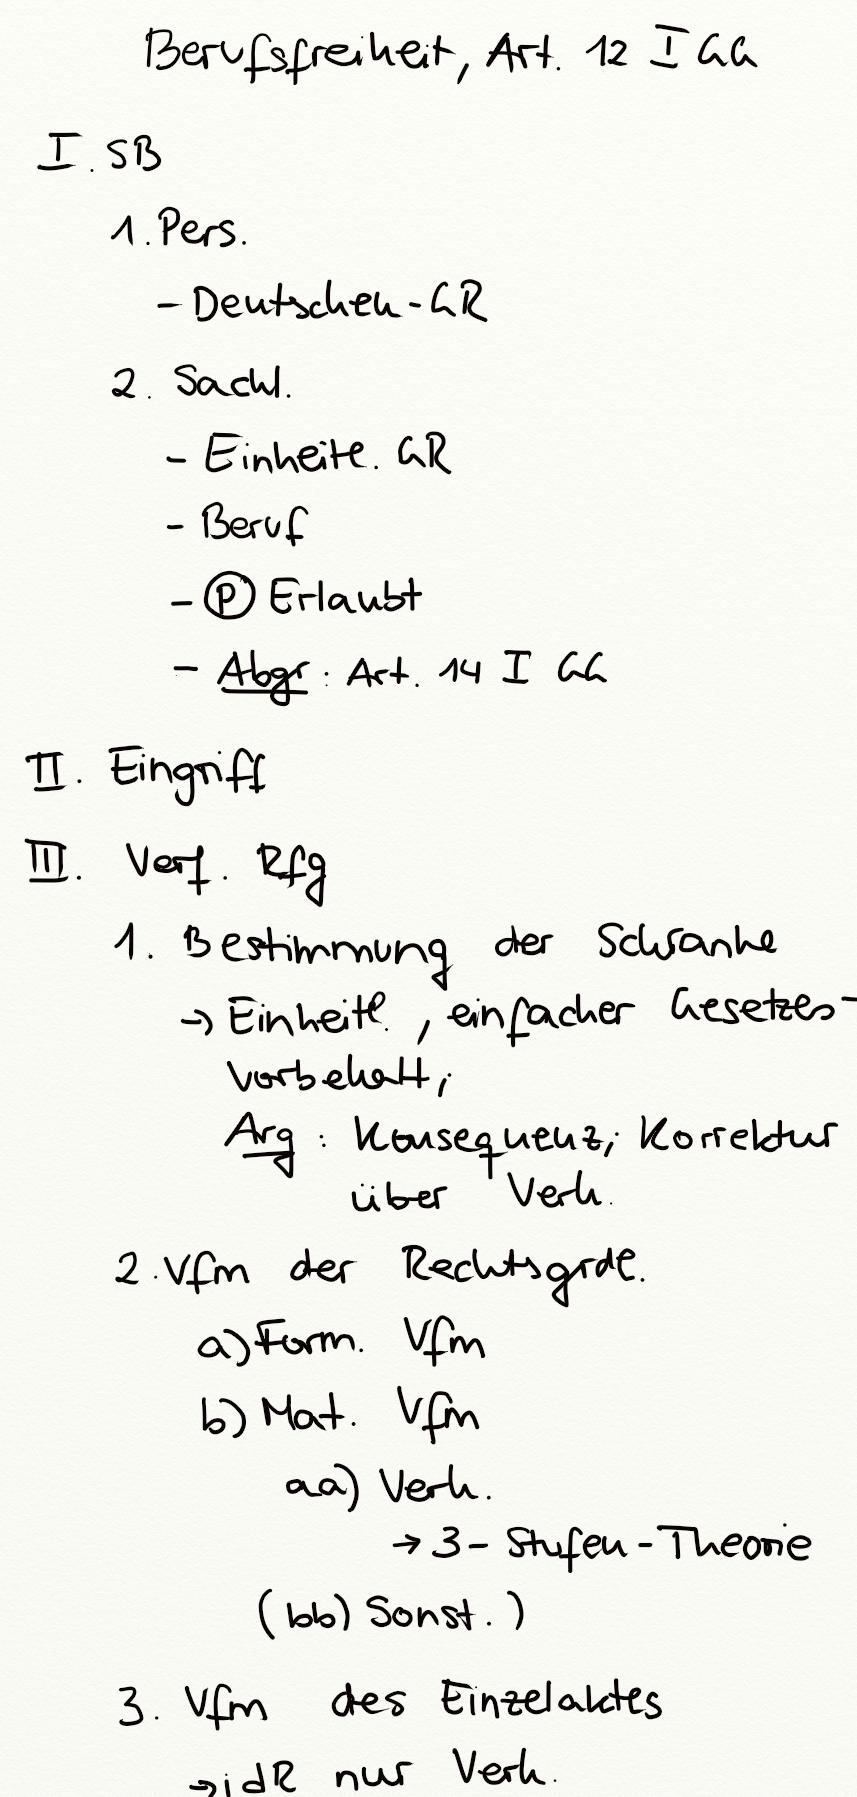 Berufsfreiheit, Art. 12 I GG
I. SB
1. Pers.
- Deutschen-GR
2. Sachl.
- Einheitl. GR
- Beruf
- (P) Erlaubt
- Abgr: Art. 14 I GG
II. Eingriff
III. Verf. Rfg
1. Bestimmung der Schranke
→ Einheitl., einfacher Gesetzes-
vorbehalt;
Arg: Konsequenz; Korrektur
über Verh.
2. Vfm der Rechtsgrdl.
a) Form. Vfm
b) Mat. Vfm
aa) Verh.
→ 3-Stufen-Theorie
(bb) Sonst.)
3. Vfm des Einzelaktes
→ idR nur Verh.